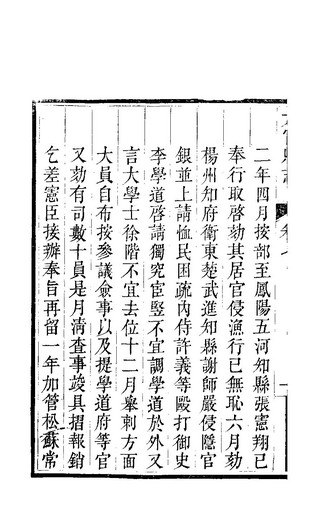 二年四月按部至鳳陽五河知縣張憲翔已
奉行取啓劾其居官侵漁行已無恥六月劾
楊州知府衛東楚武進知縣謝師嚴侵隱官
銀並上請恤民困疏內侍許義等毆打御史
李學道啓請獨究宦豎不宜調學道於外又
言大學士徐階不宜去位十二月舉刺方面
大員自布按參議僉事以及提學道府等官
又劾有司數十員是月淸查事竣具摺報銷
乞差憲臣接辦奉旨再留一年加管松蘇常